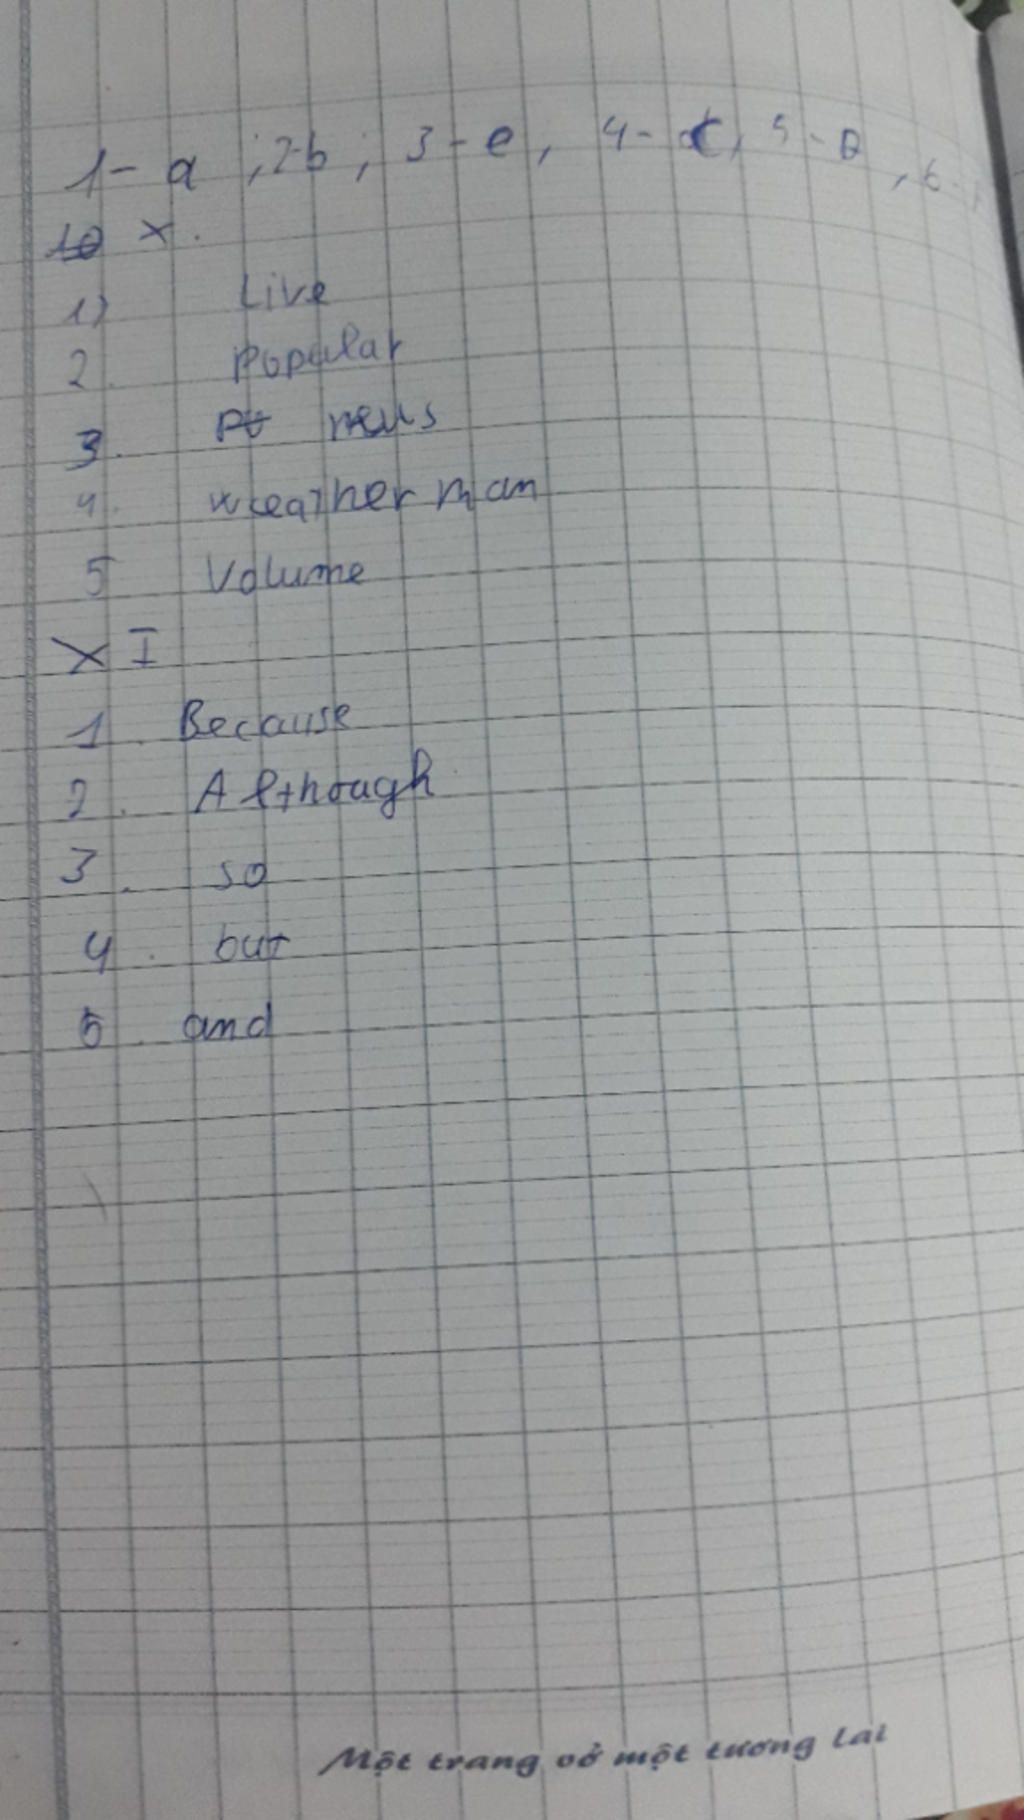 1- a ; 2-b ; 3 - e , 4 - c , 5 - , 6 -
X .
1) Live
2. popular
3. news
4. weather man
5 Volume
XI
1. Because
2. Although
3. so
4. but
5 and
Một trang vở một tương lai